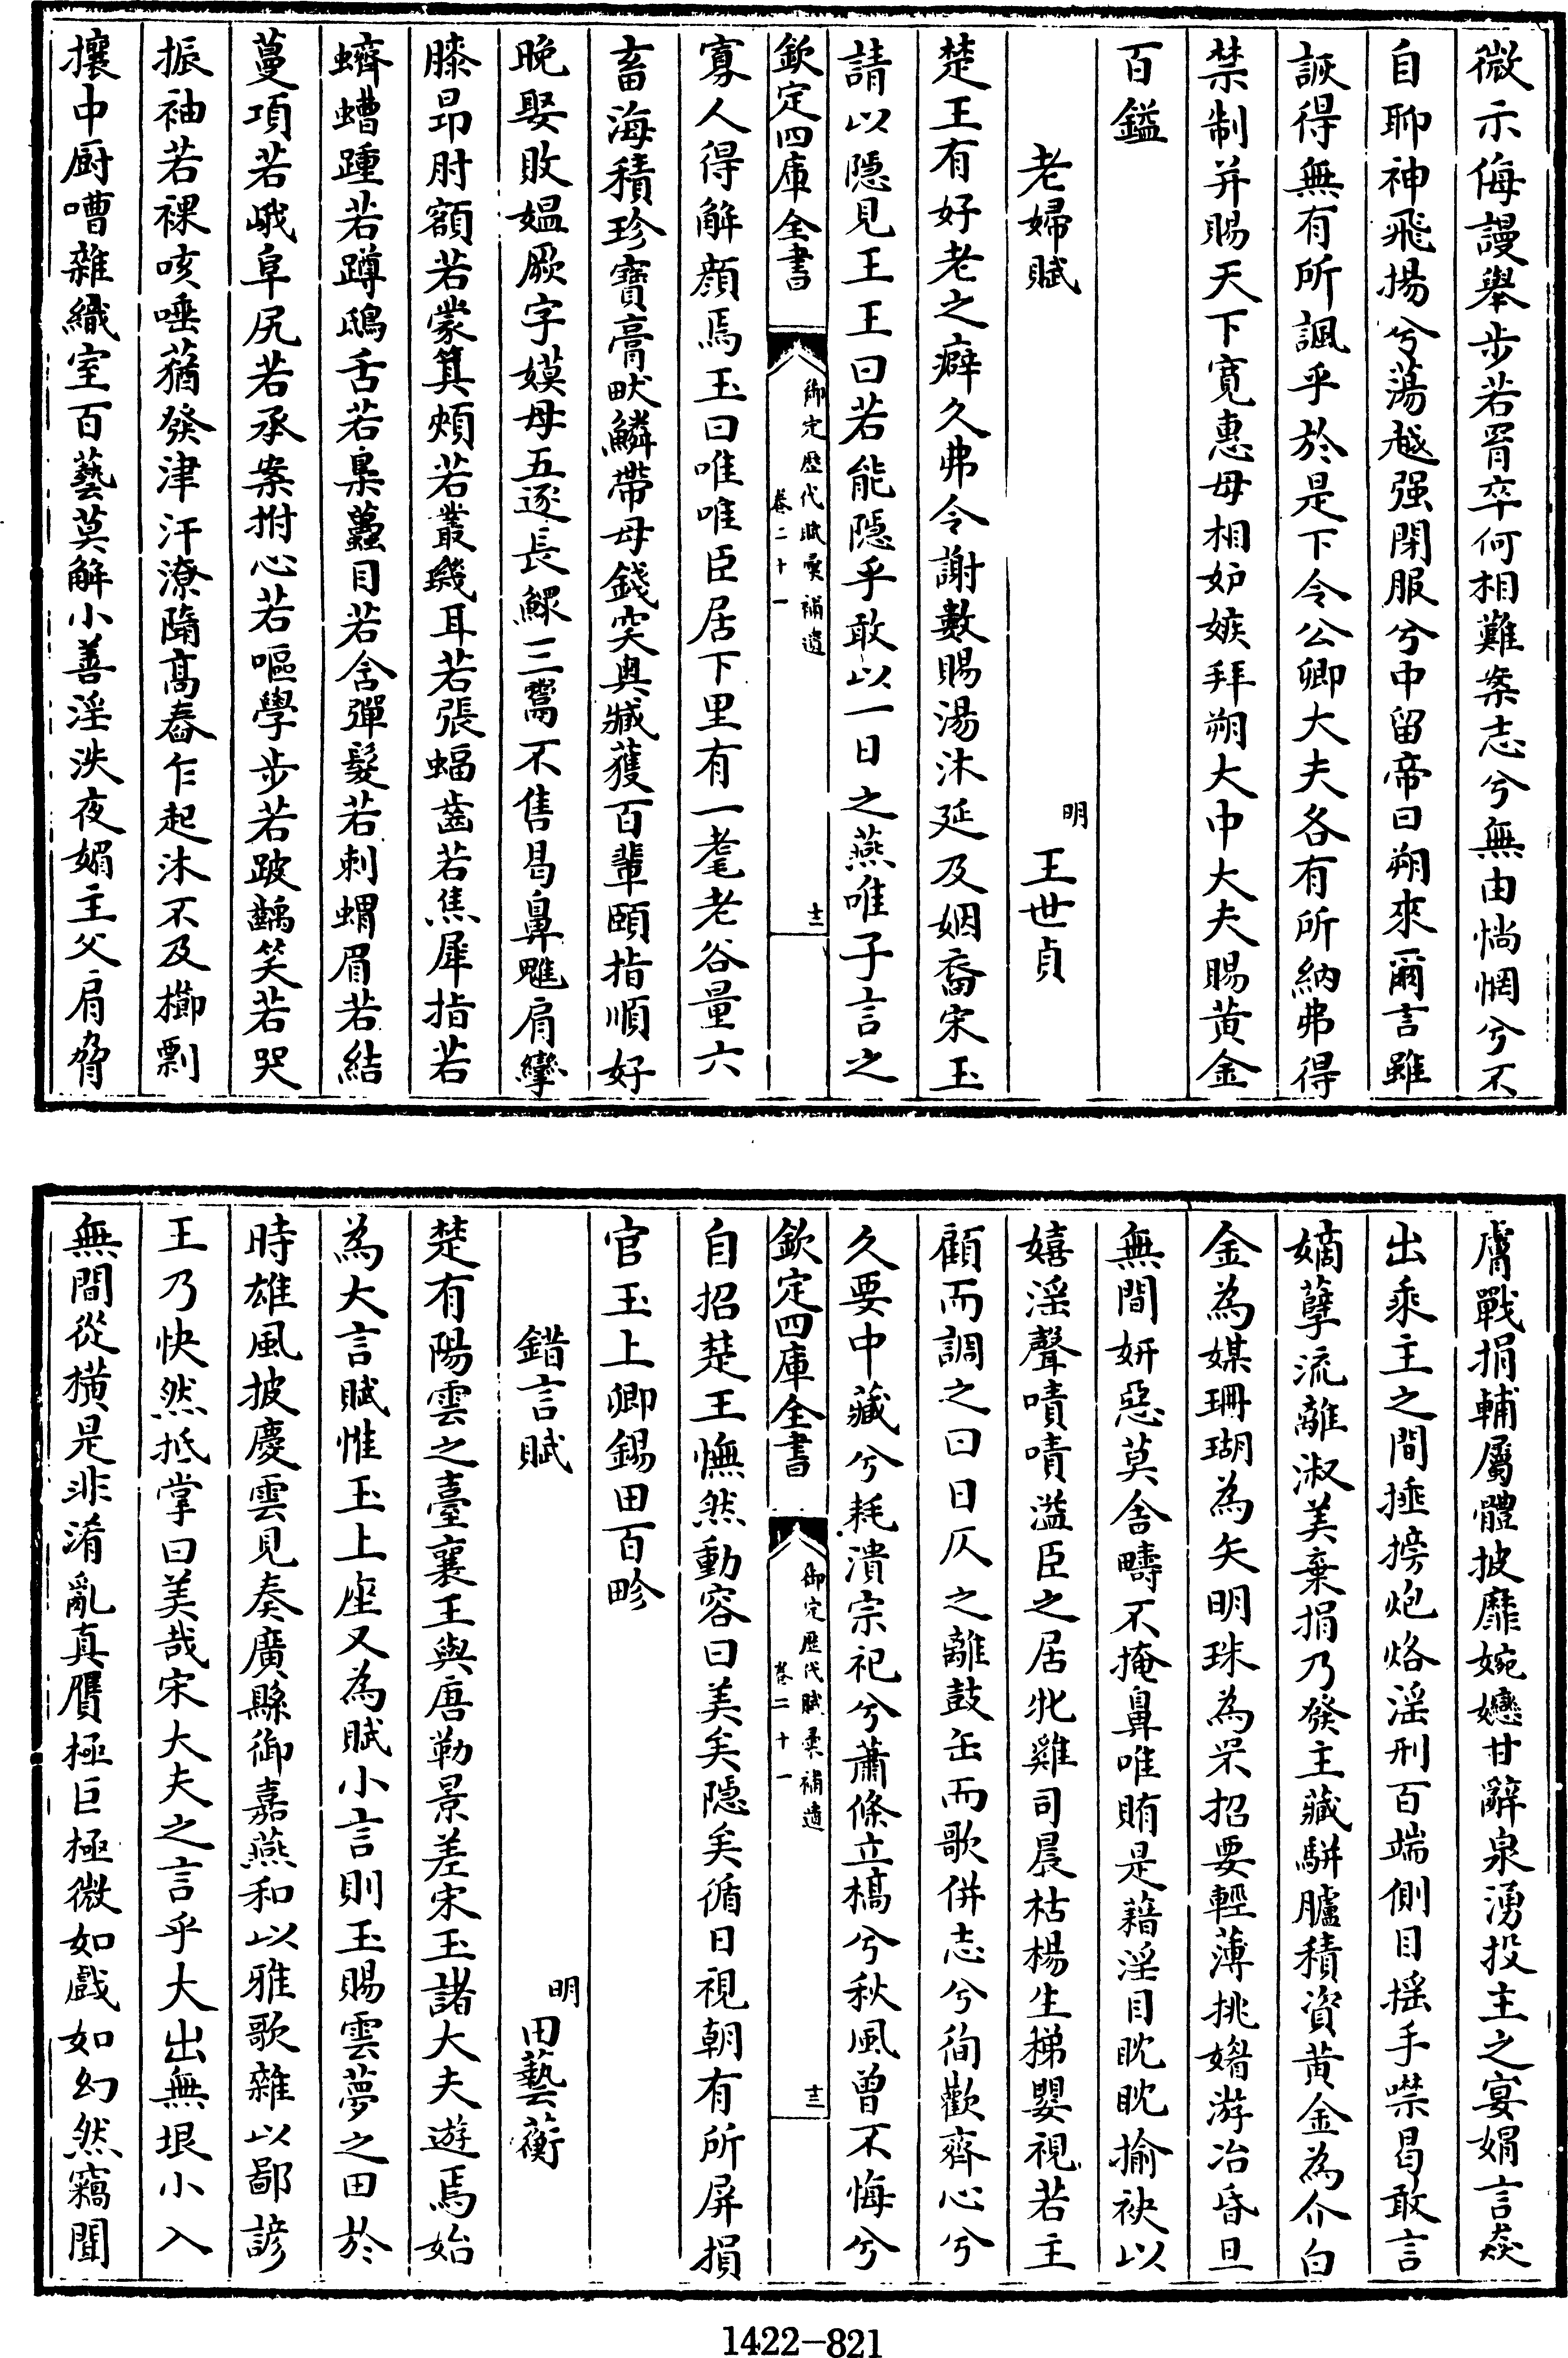 微示侮謾舉步若胥卒何相難案志兮無由惝惘兮不
自聊神飛揚兮蕩越强閉服兮中留帝曰朔來爾言雖
詼得無有所諷乎於是下令公卿大夫各有所納弗得
禁制并賜天下寛惠毋相妒嫉拜朔大中大夫賜黄金
百鎰
老婦賦 明 王世貞
楚王有好老之癖久弗令謝數賜湯沐延及姻裔宋玉
請以隱見王王曰若能隱乎敢以一日之燕唯子言之
欽定四庫全書 御定歴代賦彙補遺 卷二十一 十二
寡人得解顔焉玉曰唯唯臣居下里有一耄老谷量六
畜海積珍寳膏畎鱗帶母錢突奥臧獲百輩頤指順好
晚娶敗媪厥字嫫母五逐長鰥三鬻不售曷鼻魋肩攣
膝昂肘額若蒙箕頰若叢璣耳若張蝠齒若焦犀指若
蠐螬踵若蹲鴟舌若梟蠤目若含彈髮若刺蝟眉若結
蔓項若峨阜尻若承案拊心若嘔學步若跛齲笑若哭
振袖若裸咳唾蕕發津汗潦隋高舂乍起沐不及櫛剽
攘中厨嘈雜織室百藝莫解小善淫泆夜媚主父肩脅
膚戰捐輔屬體披靡婉孌甘辭泉湧投主之宴娟言焱
出乘主之間捶搒炮烙淫刑百端側目搖手噤曷敢言
嫡孽流離淑美棄捐乃發主藏駢臚積資黄金為介白
金為媒珊瑚為矢明珠為罘招要輕薄挑媠游冶昏旦
無間妍惡莫舍疇不掩鼻唯賄是藉淫目眈眈揄袂以
嬉淫聲嘖嘖溢臣之居牝雞司晨枯楊生稊嬰視若主
顧而調之曰日仄之離鼓缶而歌併志兮徇歡齊心兮
久要中藏兮耗潰宗祀兮蕭條立槁兮秋風曾不悔兮
欽定四庫全書 御定歴代賦彙補遺 卷二十一 十三
自招楚王憮然動容曰美矣隱矣循日視朝有所屏損
官玉上卿錫田百畛
錯言賦 明 田藝蘅
楚有陽雲之臺襄王與唐勒景差宋玉諸大夫遊焉始
為大言賦惟玉上座又為賦小言則玉賜雲夢之田於
時雄風披慶雲見奏廣縣御嘉燕和以雅歌雜以鄙諺
王乃快然抵掌曰美哉宋大夫之言乎大出無垠小入
無間從横是非淆亂真贋極巨極微如戲如幻然竊聞
1422—821